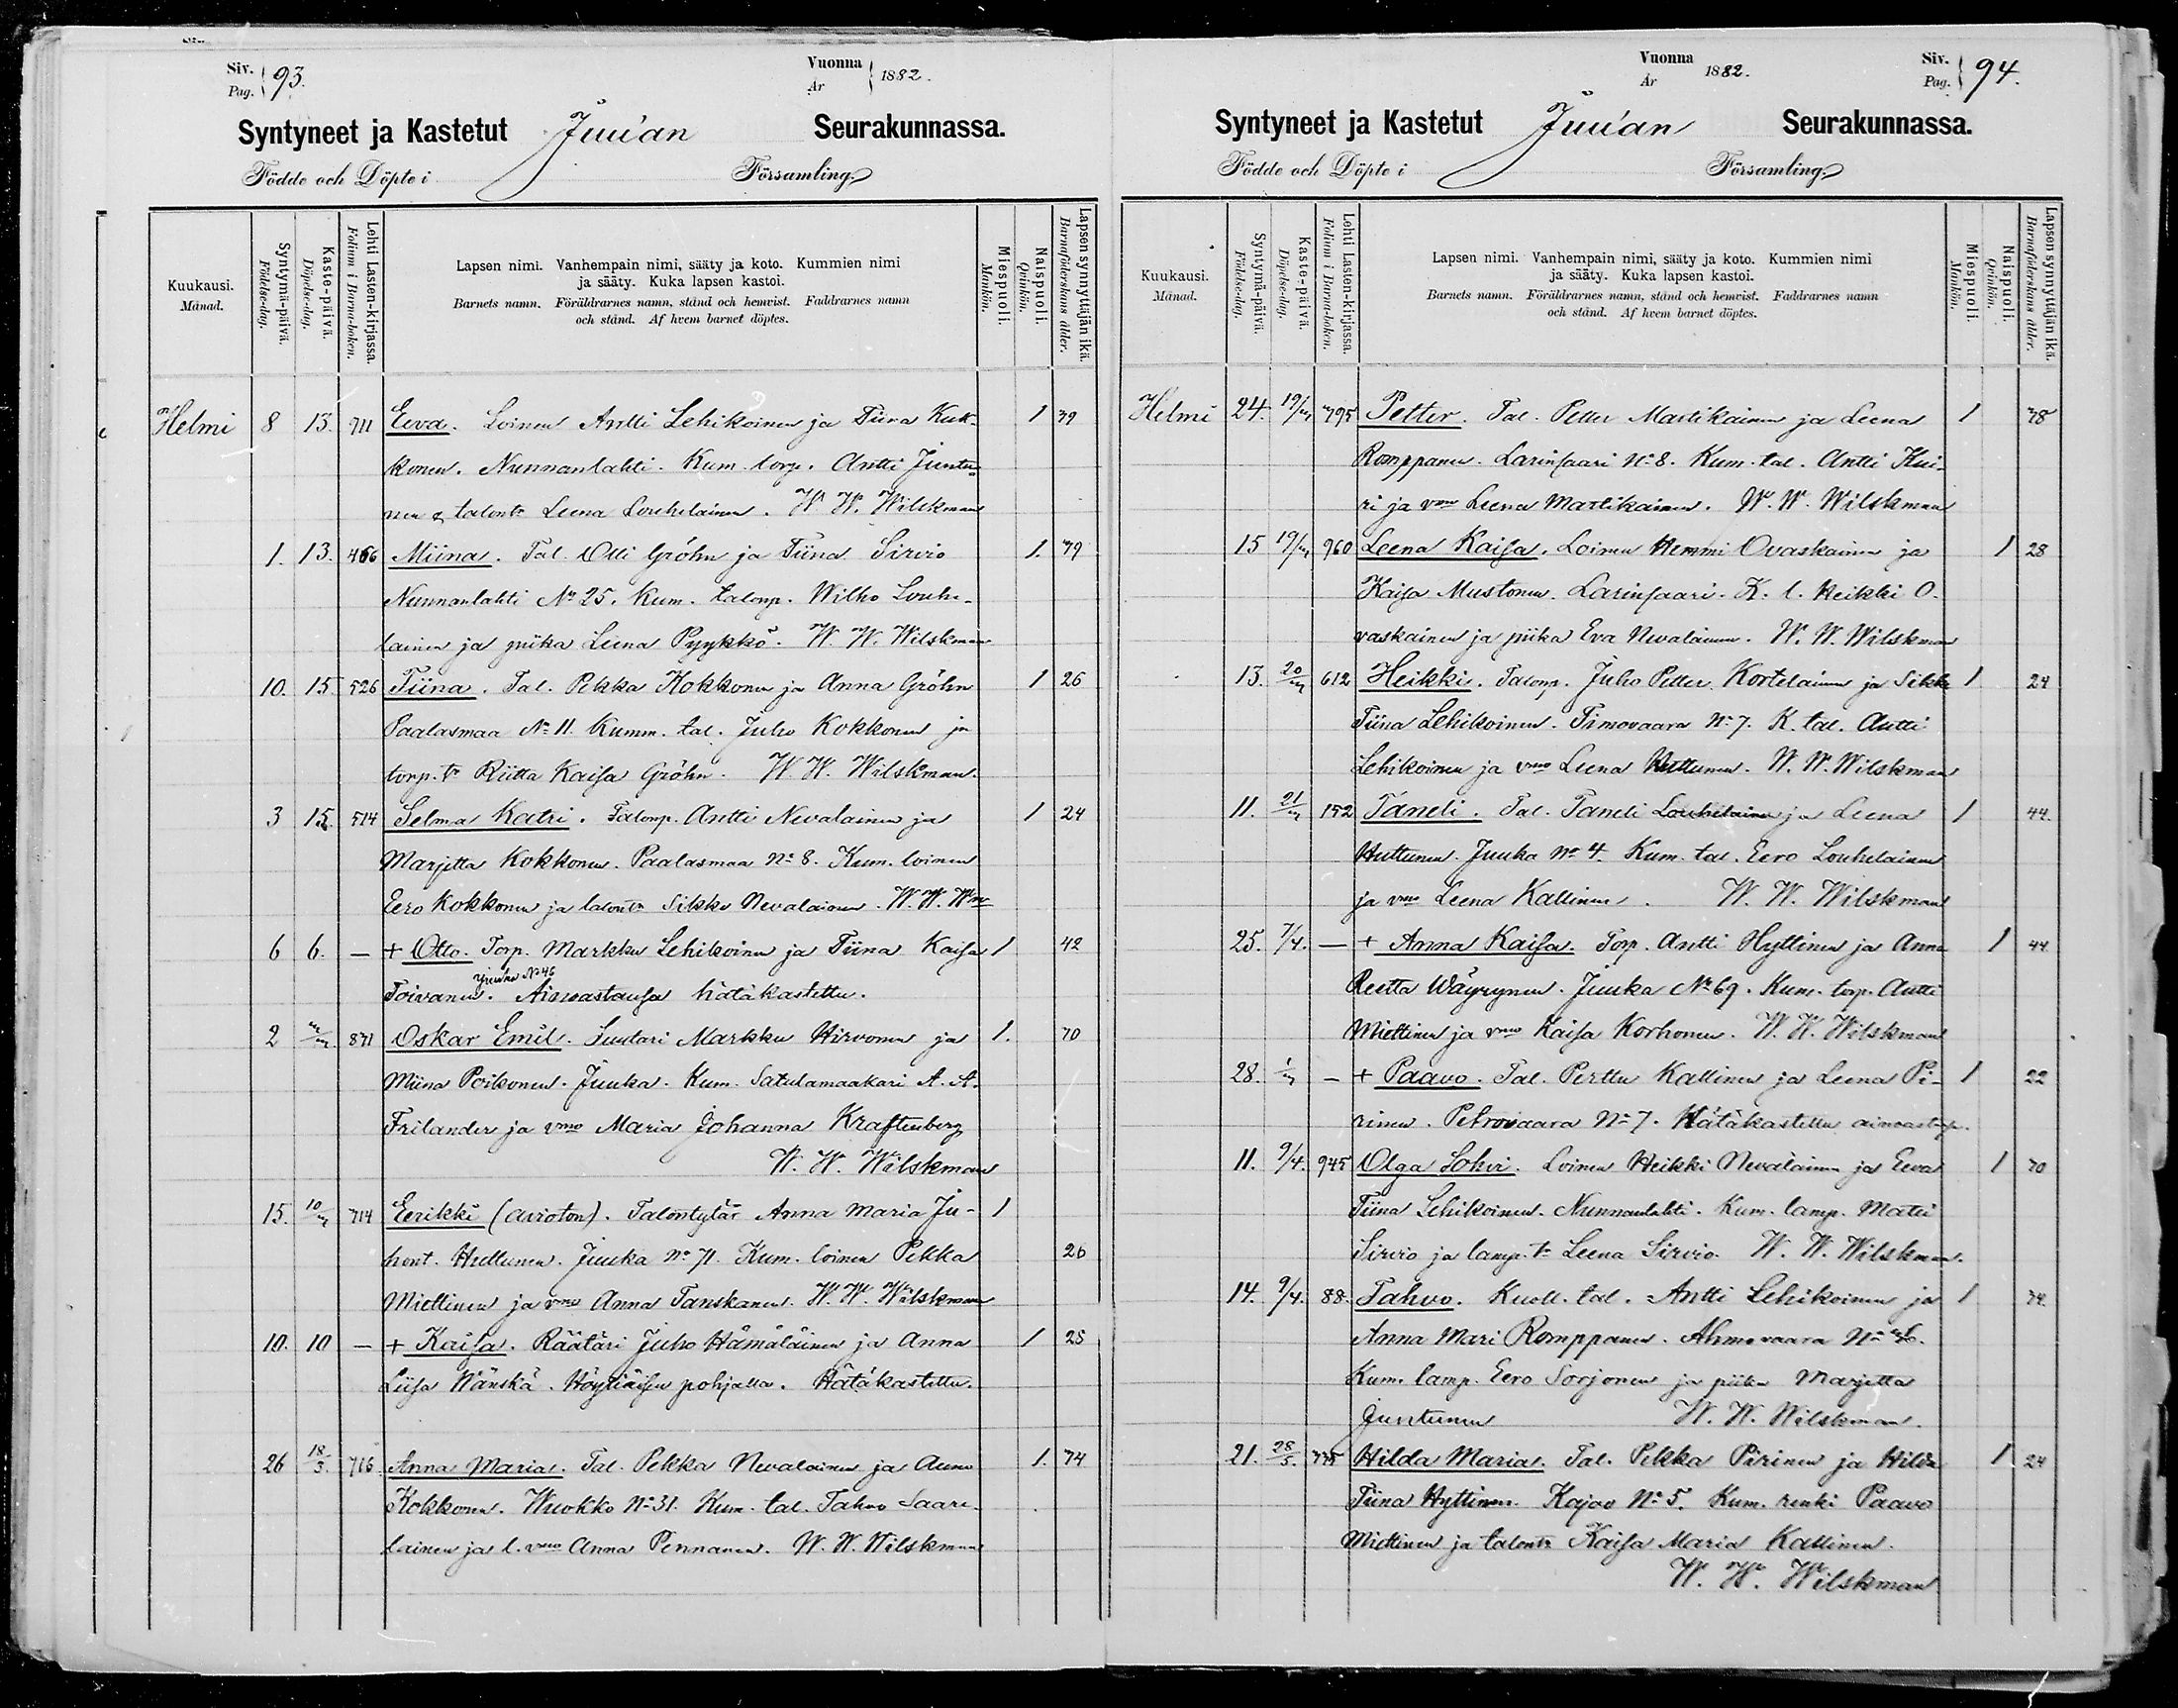 Siv. Pag. 93. Vuonna År 1882.
Syntyneet ja Kastetut Juu'an Seurakunnassa.
Födde och Döpte i Församling.
Kuukausi. Månad.
Syntymä-päivä. Födelse-dag.
Kaste-päivä. Döpelse-dag.
Lehti Lasten-kirjassa. Folium i Barna-boken.
Lapsen nimi. Vanhempain nimi, sääty ja koto. Kummien nimi
ja sääty. Kuka lapsen kastoi.
Barnets namn. Föräldrarnes namn, stånd och hemvist. Faddrarnes namn
och stånd. Af hvem barnet döptes.
Miespuoli. Mankön.
Naispuoli. Qvinkön.
Lapsen synnyttäjän ikä. Barnaföderskans ålder.
Helmi 8 13. 711 Eeva. Loinen Antti Lehikoinen ja Tiina Kuk- 1 39
konen. Nunnanlahti. Kum. torp. Antti Juntu-
nen & talontr Leena Louhelainen. W. W. Wilskman
1. 13. 466 Miina. Tal. Olli Gröhn ja Tiina Sirvio 1. 39
Nunnanlahti No 25. Kum. talonp. Wilho Louhe-
lainen ja piika Leena Pyykkö. W. W. Wilskman
10. 15 526 Tiina. Tal. Pekka Kokkonen ja Anna Gröhn 1 26
Paalasmaa No 11. Kumm. tal. Juho Kokkonen ja
torp. tr Riitta Kaisa Gröhn. W. W. Wilskman.
3 15. 514 Selma Katri. Talonp. Antti Nevalainen ja 1 24
Marjetta Kokkonen. Paalasmaa No 8. Kum. loinen
Eero Kokkonen ja talontr Sikke Nevalainen. W. W. Wm
6 6. — + Otto. Torp. Markku Lehikoinen ja Tiina Kaisa 1 42
Juuka No 46
Toivanen. Ainoastansa hätäkastettu.
2 871 Oskar Emil. Suutari Markku Hirvonen ja 1. 70
Miina Poikonen. Juuka. Kum. Satulamaakari A. A.
Frilander ja vmo Maria Johanna Kraftenberg
W. W. Wilskman
15. 10/m 714 Eerikki (avioton). Talontytär Anna Maria Ju- 1
hont. Huttunen. Juuka No 71. Kum. loinen Pekka 26
Miettinen ja vmo Anna Tanskanen. W. W. Wilskman
10. 10 — + Kaisa. Räätäri Juho Hämäläinen ja Anna 1 28
Liisa Wänskä. Höytiäisen pohjalla. Hätäkastettu.
26 18/3. 716. Anna Maria. Tal. Pekka Nevalainen ja Anna 1. 74
Kokkonen. Wuokko No 31. Kum. tal. Tahvo Saare-
lainen ja l. vmo Anna Pennanen. W. W. Wilskman
Vuonna År 1882. Siv. Pag. 94.
Syntyneet ja Kastetut Juu'an Seurakunnassa.
Födde och Döpte i Församling.
Kuukausi. Månad.
Syntymä-päivä. Födelse-dag.
Kaste-päivä. Döpelse-dag.
Lehti Lasten-kirjassa. Folium i Barna-boken.
Lapsen nimi. Vanhempain nimi, sääty ja koto. Kummien nimi
ja sääty. Kuka lapsen kastoi.
Barnets namn. Föräldrarnes namn, stånd och hemvist. Faddrarnes namn
och stånd. Af hvem barnet döptes.
Miespuoli. Mankön.
Naispuoli. Qvinkön.
Lapsen synnyttäjän ikä. Barnaföderskans ålder.
Helmi 24. 19/m 795 Petter. Tal. Petter Martikainen ja Leena 1 78
Romppanen. Larinsaari No 8. Kum. tal. Antti Kui-
ri ja vmo Leena Martikainen. W. W. Wilskman
15 19/m 960 Leena Kaisa. Loinen Hemmi Ovaskainen ja 1 28
Kaisa Mustonen. Larinsaari. K. l. Heikki O-
vaskainen ja piika Eva Nevalainen. W. W. Wilskman
13. 20/m 612 Heikki. Talonp. Juho Petter Kortelainen ja Sikke 1 24
Tiina Lehikoinen. Timovaara No 7. K. tal. Antti
Lehikoinen ja vmo Leena Huttunen. W. W. Wilskman
11. 21/m 152 Taneli. Tal. Taneli Louhelainen ja Leena 1 44.
Huttunen. Juuka No 4. Kum. tal. Eero Louhelainen
ja vmo Leena Kallinen. W. W. Wilskman
25. 7/4. — + Anna Kaisa. Torp. Antti Hyttinen ja Anna 1 44.
Reetta Wäyrynen. Juuka No 69. Kum. torp. Antti
Miettinen ja vmo Kaisa Korhonen. W. W. Wilskman
28. 1/m — + Paavo. Tal. Perttu Kallinen ja Leena Pi- 1 22
rinen. Petrovaara No 7. Hätäkastettu ainoast
11. 9/4. 945 Olga Sohvi. Loinen Heikki Nevalainen ja Eeva 1 70
Tiina Lehikoinen. Nunnanlahti. Kum. lamp. Matti
Sirvio ja lamp. tr Leena Sirvio. W. W. Wilskman.
14. 9/4. 88. Tahvo. Kuoll. tal. Antti Lehikoinen ja 1 74.
Anna Mari Romppanen. Ahmovaara No
Kum. lamp. Eero Sorjonen ja piika Marjetta
Juntunen W. W. Wilskman.
21. 28/5. 775 Hilda Maria. Tal. Pekka Pirinen ja Hilda 1 24
Tiina Hyttinen. Kajoo No 5. Kum. renki Paavo
Miettinen ja talontr Kaisa Maria Kallinen.
W. W. Wilskman